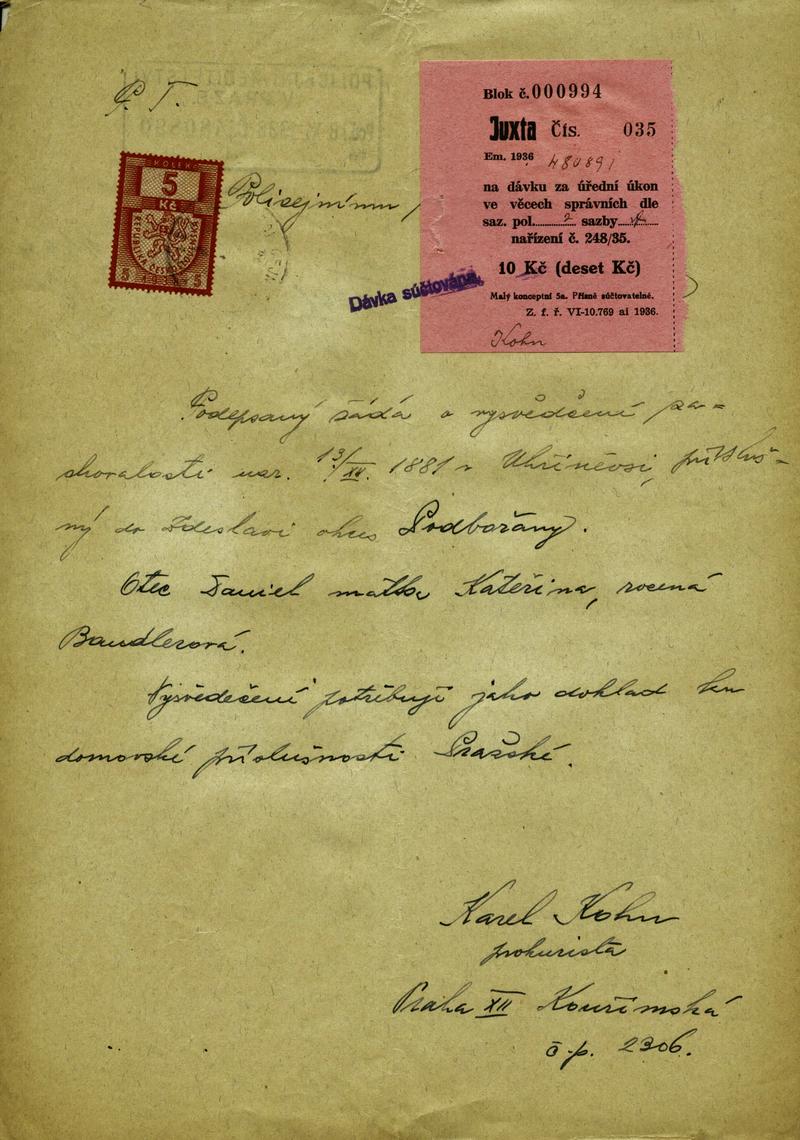 P. T.
KOLEK
5
Kč
REPUBLIKA ČESKOSLOVENSKÁ
5 5
Policejnímu
Blok č. 000994
Juxta Čís. 035
Em. 1936 480891
na dávku za úřední úkon
ve věcech správních dle
saz. pol. 2 sazby
nařízení č. 248/35.
10 Kč (deset Kč)
Malý konceptní 5a. Přísně súčtovatelné.
Z. f. ř. VI-10.769 ai 1936.
Kohn
Dávka súčtována.
Podepsaný žádá o vysvědčení za-
chovalosti nar. 13/XII. 1881 v Uhříněvsi, přísluš-
ný do Zdeslavi okres Podbořany.
Otec Daniel matka Kateřina, rozená
Bandlerová.
Vysvědčení potřebuji jako doklad ku
domovské příslušnosti Pražské.
Karel Kohn
prokurista
Praha XII Kouřimská
č p. 2306.